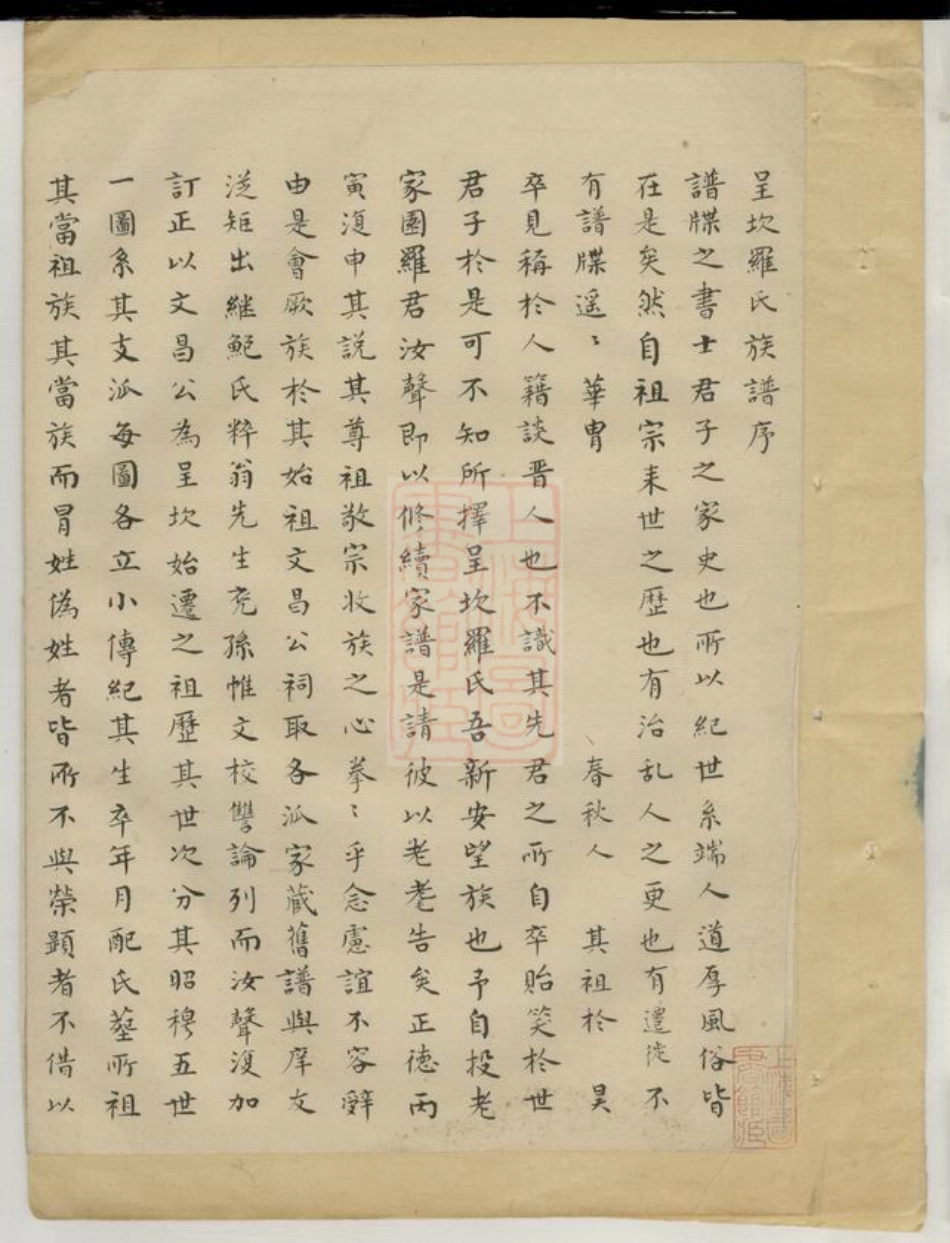 呈坎羅氏族譜序
譜牒之書士君子之家史也所以紀世系端人道厚風俗皆
在是矣然自祖宗来世之歷也有治乱人之更也有遷徙不
有譜牒遥〻華胄 春秋人 其祖於 昊
卒見稱於人籍談晋人也不識其先君之所自卒貽笑於世
君子於是可不知所擇呈坎羅氏吾新安望族也予自投老
家園羅君汝聲即以修續家譜是請彼以老耄告矣正德丙
寅復申其説其尊祖敬宗收族之心拳〻乎念慮誼不容辭
由是會厥族於其始祖文昌公祠取各派家藏舊譜與庠友
從矩出継鮑氏粹翁先生克孫惟文校讐論列而汝聲復加
訂正以文昌公為呈坎始遷之祖歷其世次分其昭穆五世
一圖系其支派每圖各立小傳紀其生卒年月配氏塟所祖
其當祖族其當族而冒姓偽姓者皆所不與榮顕者不借以